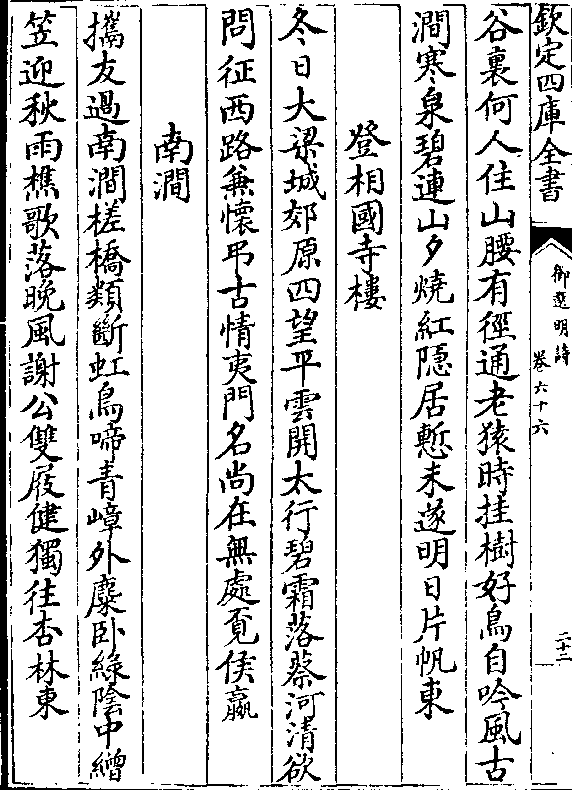 欽定四庫全書
御選明詩
卷六十六
二十三
谷裏何人住山腰有徑通老猿時挂樹好鳥自吟風古
澗寒泉碧連山夕燒紅隱居慙未遂明日片帆東
登相國寺樓
冬日大梁城郊原四望平雲開太行碧霜落蔡河清欲
問征西路兼懷弔古情夷門名尚在無處覓侯嬴
南澗
攜友過南澗槎橋類斷虹鳥啼青嶂外麋卧綠陰中繒
笠迎秋雨樵歌落晚風謝公雙屐健獨往杏林東